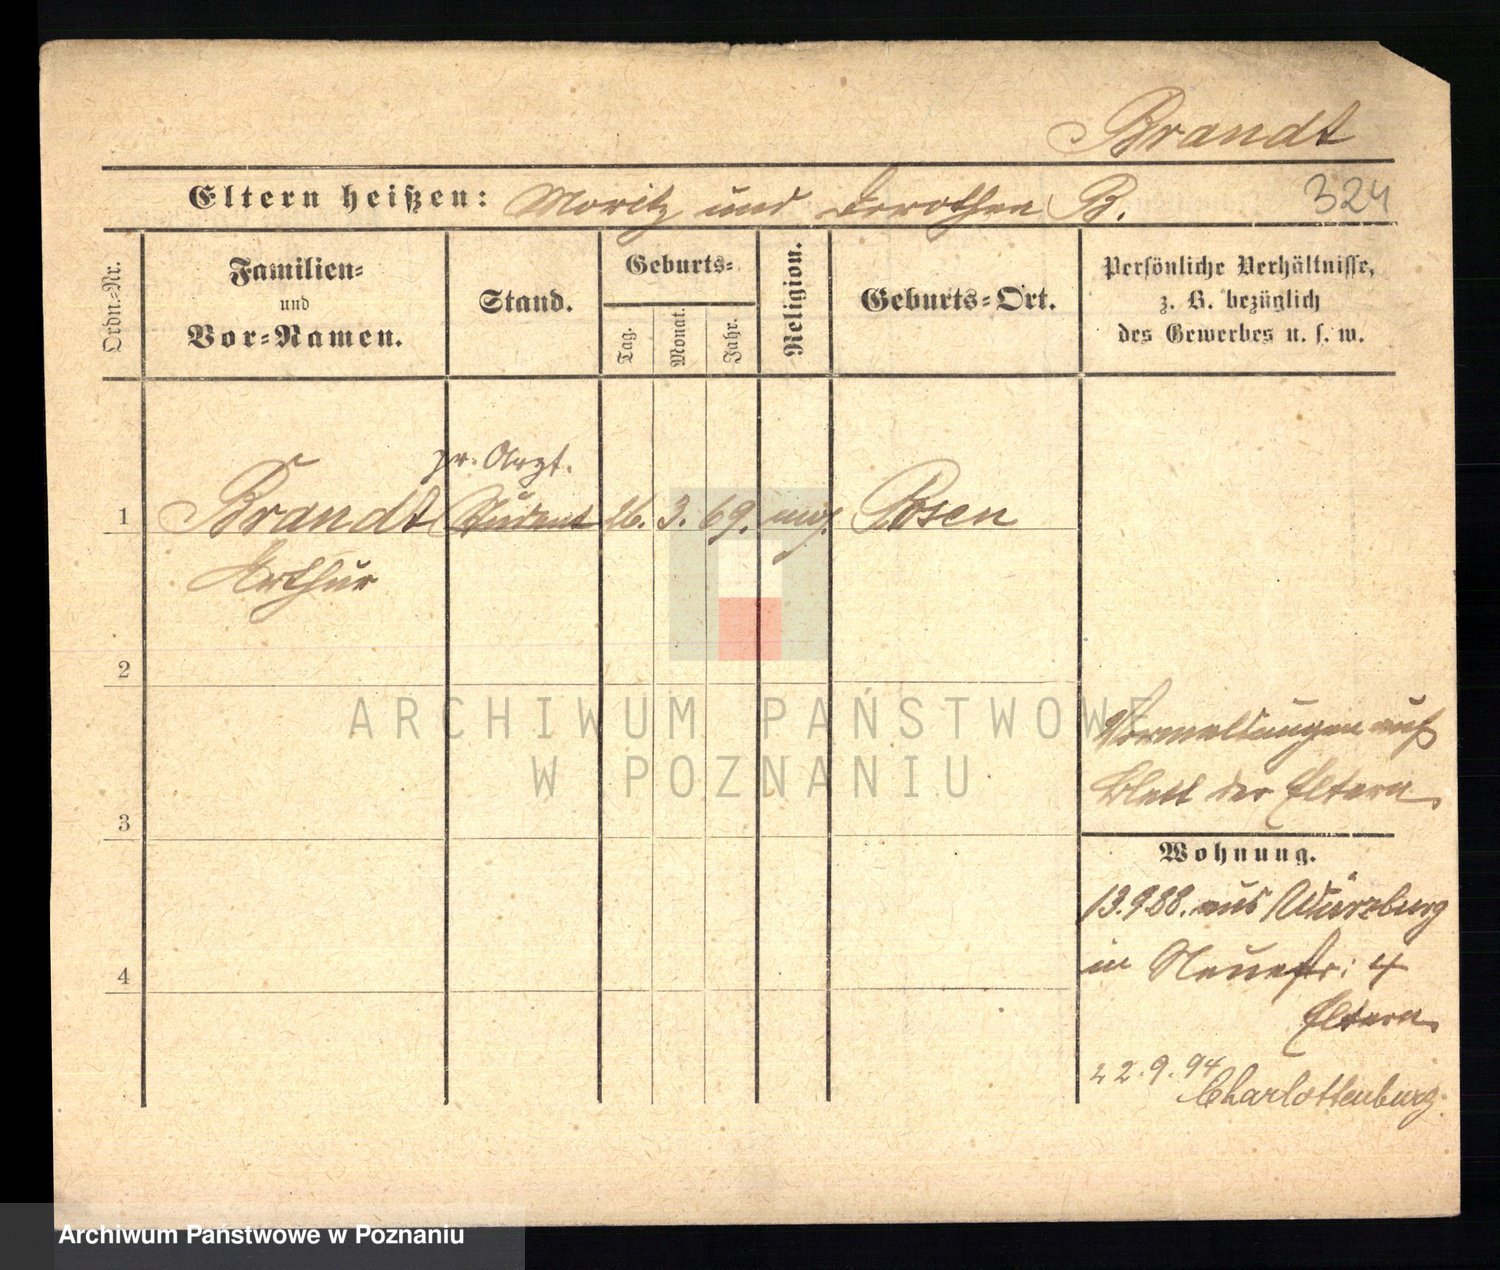 Brandt
Eltern heißen: Moritz und Dorothea B. 324
Ordn.-Nr.
Familien-
und
Vor-Namen.
Stand.
Geburts-
Tag. Monat. Jahr.
Religion.
Geburts-Ort.
Persönliche Verhältnisse,
z. B. bezüglich
des Gewerbes u. s. w.
pr. Arzt.
1 Brandt Student 26. 3. 69. mos. Posen
Arthur
2
3
4
Vormeldungen auf
Blatt der Eltern
Wohnung.
13.9 88. aus Würzburg
in Neuestr: 4
Eltern
22.9.94
Charlottenburg.
ARCHIWUM PAŃSTWOWE
W POZNANIU
Archiwum Państwowe w Poznaniu